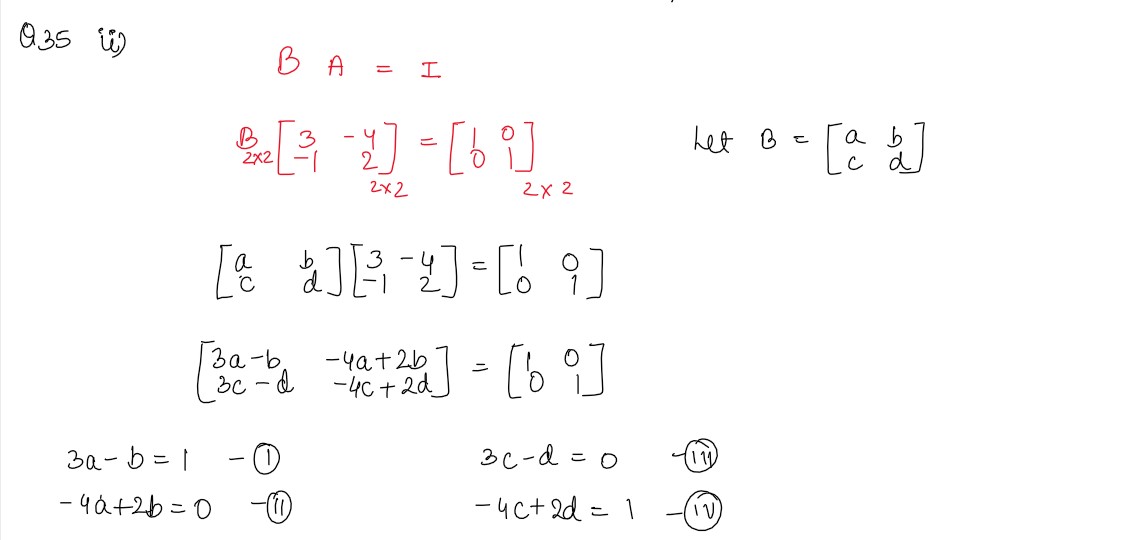 Q35 ii)
B A = I
B 2×2 [3 -4 -1 2] 2×2 = [1 0 0 1] 2×2 Let B = [a b c d]
[a b c d] [3 -4 -1 2] = [1 0 0 1]
[3a-b -4a+2b 3c-d -4c+2d] = [1 0 0 1]
3a-b = 1 - (i) 3c-d = 0 - (iii)
-4a+2b = 0 - (ii) -4c+2d = 1 - (iv)